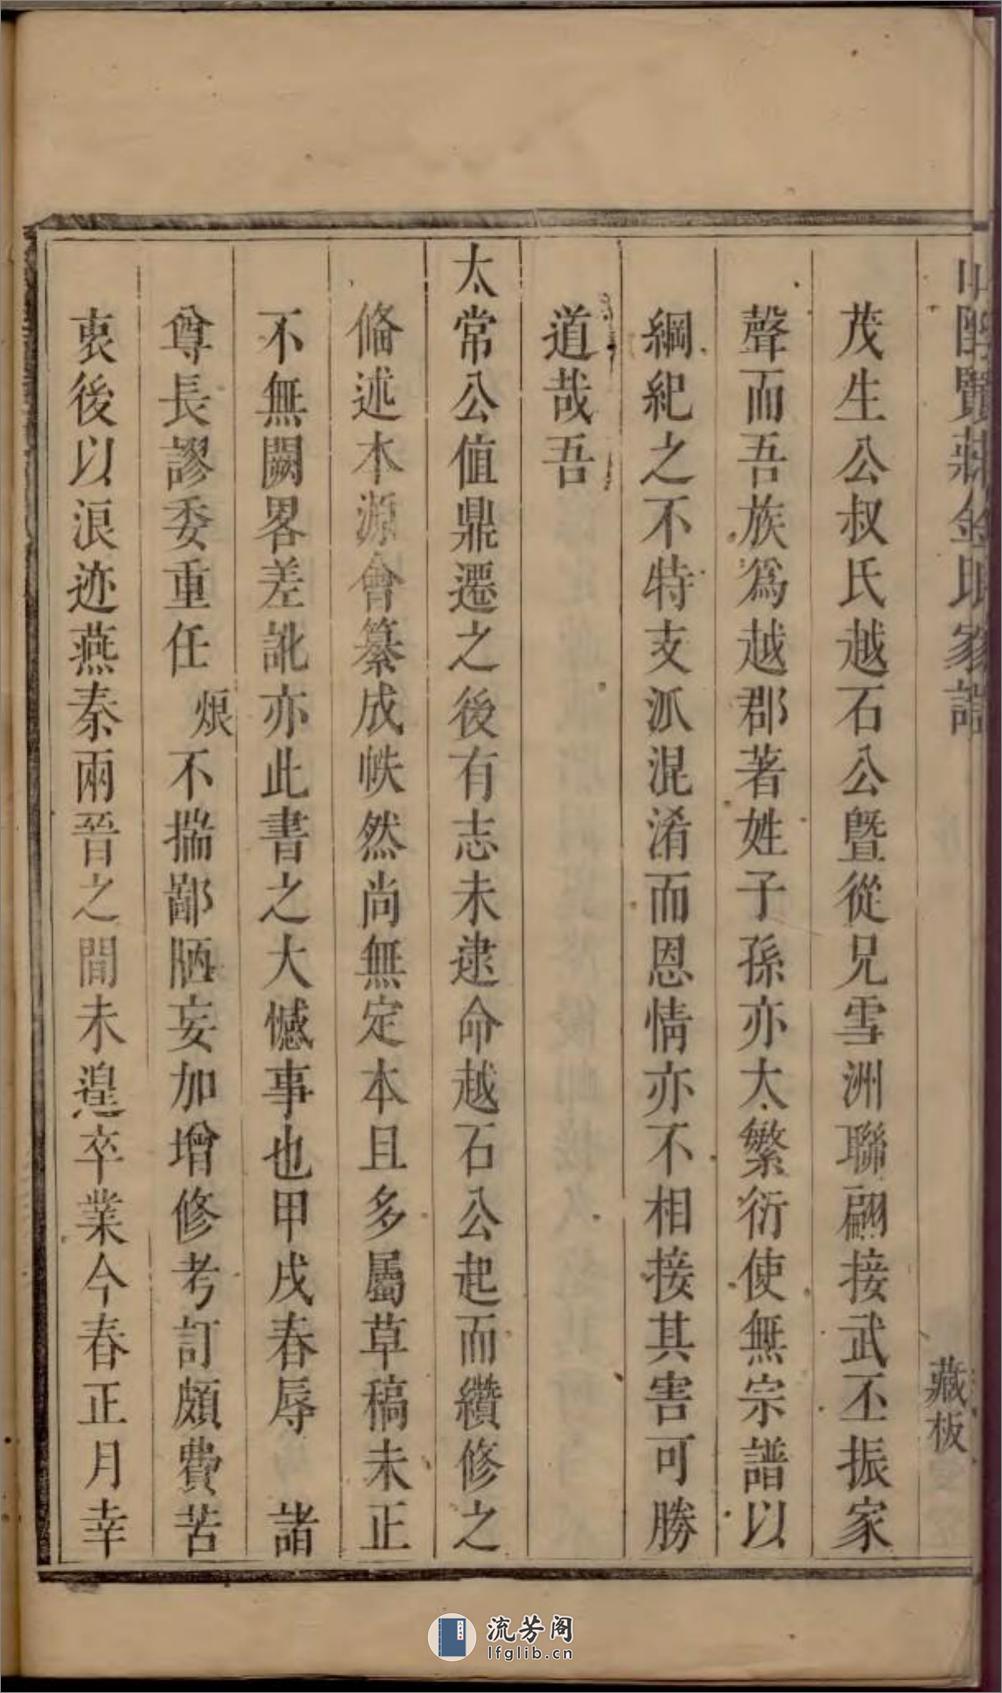 賢莊金家譜
藏板
茂生公叔氏越石公暨從兄雪洲聯翩接武丕振家
聲而吾族爲越郡著姓子孫亦大繁衍使無宗譜以
綱紀之不特支派混淆而恩情亦不相接其害可勝
道哉吾
太常公值鼎遷之後有志未逮命越石公起而纘修之
備述本源會纂成帙然尚無定本且多屬草稿未正
不無闕畧差訛亦此書之大憾事也甲戌春辱 諸
尊長謬委重任 烺不揣鄙陋妄加增修考訂頗費苦
衷後以浪迹燕秦兩晉之間未遑卒業今春正月幸
流芳阁
lfglib.cn